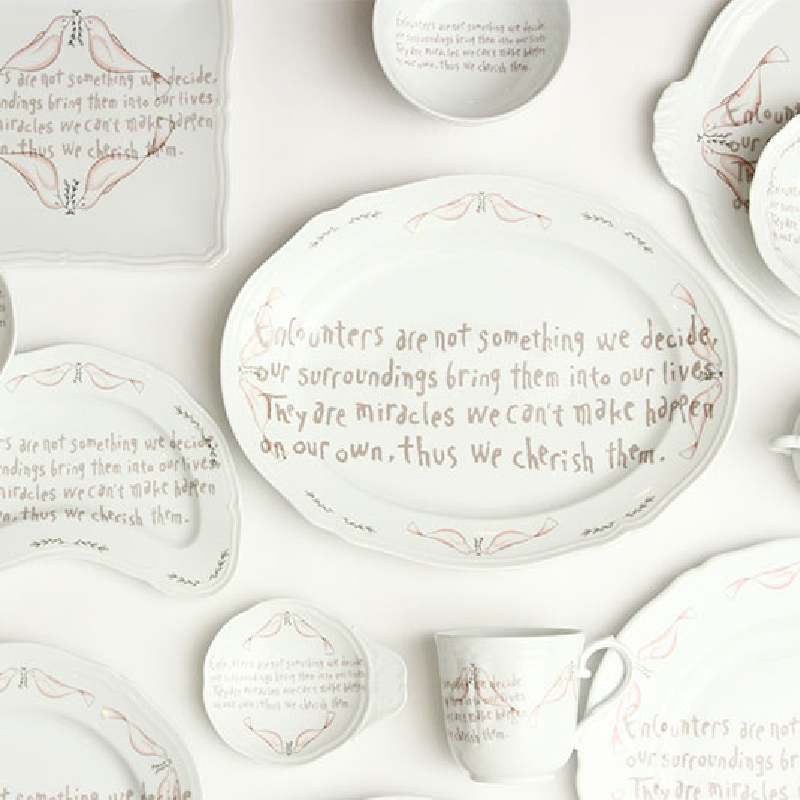 s are not something we decide,
ndings bring them into our lives.
miracles we can't make happen
n, thus we cherish them.
Encounters are not something we decide,
our surroundings bring them into our lives.
They are miracles we can't make happen
on our own, thus we cherish them.
Encount
our
Th
Encounters are not something we decide,
our surroundings bring them into our lives.
They are miracles we can't make happen
on our own, thus we cherish them.
s are not something we decide,
ndings bring them into our lives.
miracles we can't make happen
n, thus we cherish them.
Encounters are not something we decide,
our surroundings bring them into our lives.
They are miracles we can't make happen
on our own, thus we cherish them.
we decide,
our lives
can't make happen
cherish them.
Encounters are not
our surroundings br
They are miracles
not something we decide